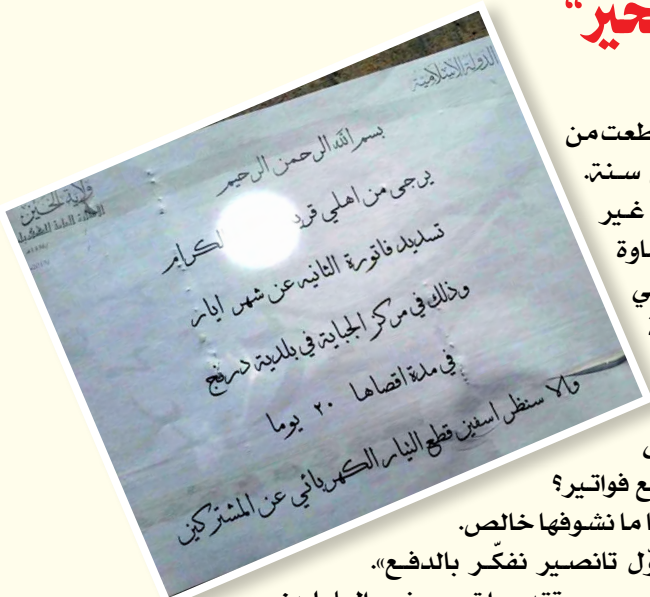 حير"
طعت من
سنة.
غير
ـاوة
ـي
الدولة الإسلامية
ولاية الخير
بسم الله الرحمن الرحيم
يرجى من اهلي قرية الكرام
تسديد فاتورة الثانيه عن شهر ايار
وذلك في مركز الجباية في بلدية درنج
في مدة اقصاها ٢٠ يوما
والا سنظر اسفين قطع التيار الكهربائي عن المشتركين
ـع فواتير؟
ـا ما نشوفها خالص.
ـوّل تانصير نفكّر بالدفع».